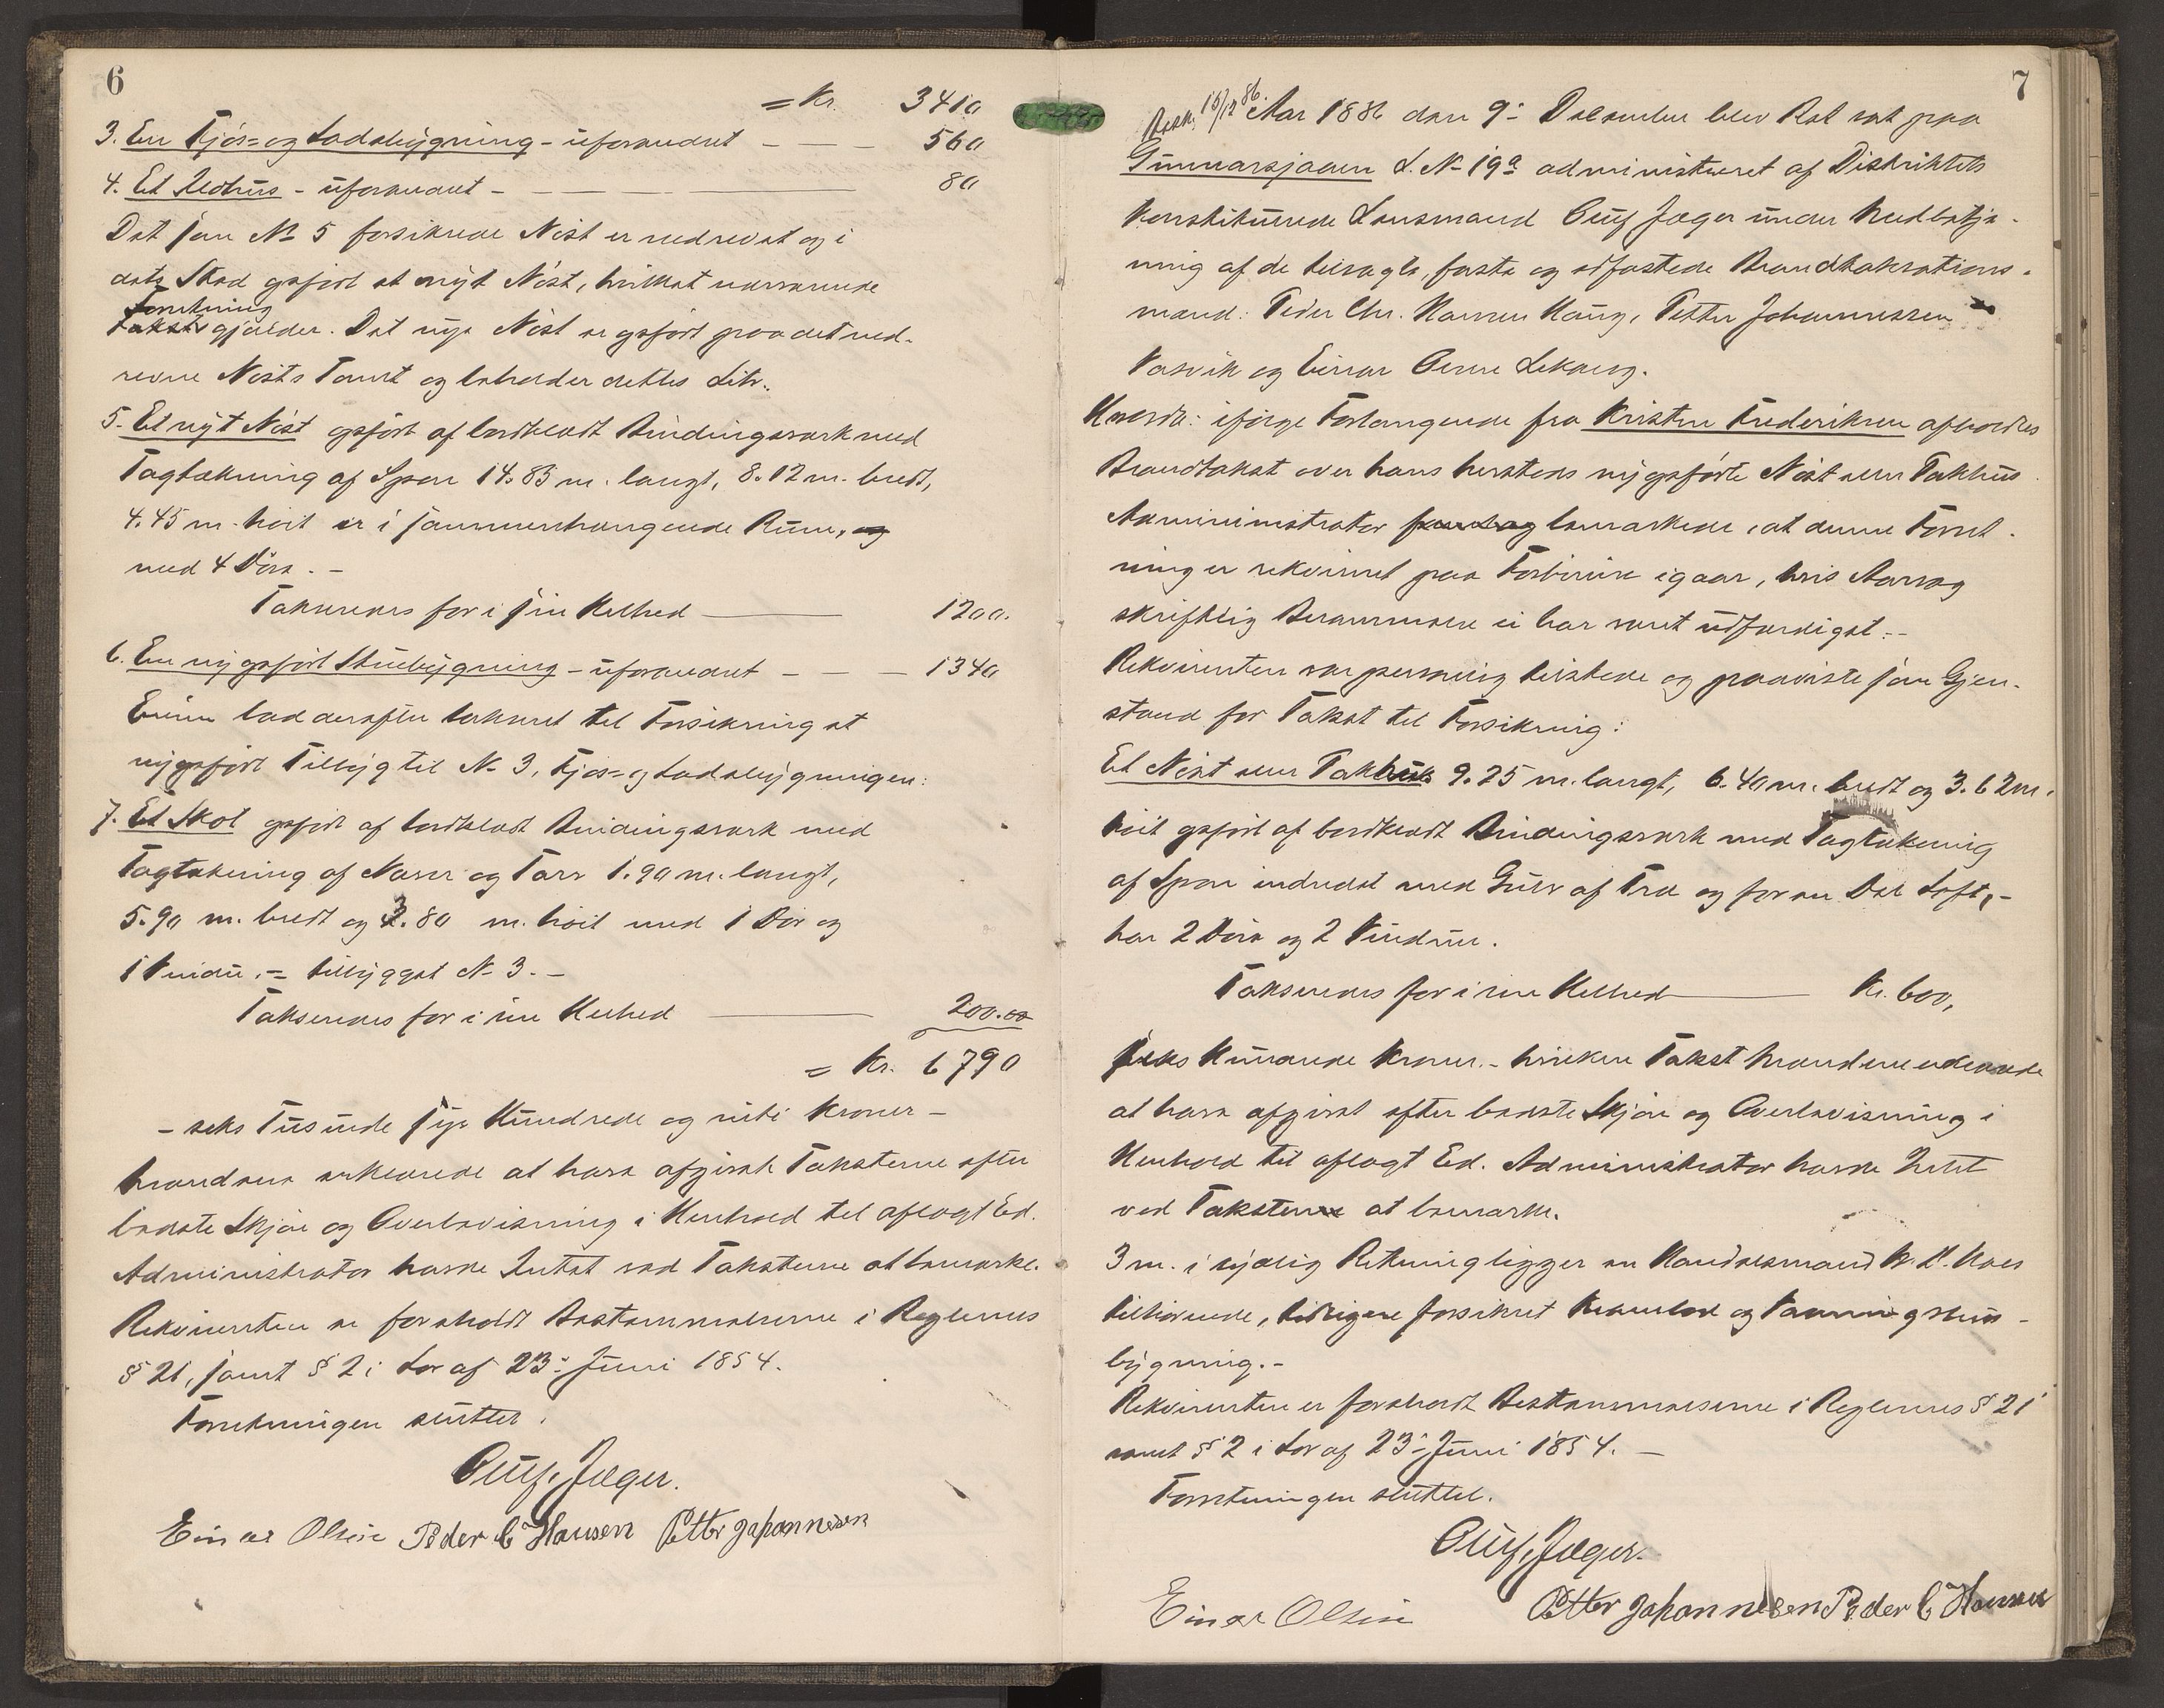 6
= Kr. 3410
3. En Fjøs= og Ladebygning - uforandret - — — 560
4. Et Vedhus - uforandret - — — 80
Det som No 5 forsikrede Nøst er nedrevet og i
dets Sted opført et nyt Nøst, hvilket nærværende
Forretning
Takst gjælder. Det nye Nøst er opført paa det ned-
revne Nøsts Tomt og beholder dettes Litr.
5. Et nyt Nøst opført af bordklædt Bindingsverk med
Tagtækning af Spon 14.83 m. langt, 8.12 m. bredt,
4.45 m. høit er i sammenhængende Rum, og
med 4 Døre. -
Takseredes for i sin Helhed — 1200.
6. En nyopført Stuebygning - uforandret - — — 1340
Enim lod derefter taksert til Forsikring et
nyopført Tilbyg til No 3, Fjøs= og Ladebygningen:
7. Et Skot opført af bordklædt Bindingsverk med
Tagtækning af Næver og Torv 1.90 m. langt,
5.90 m. bredt og 3.80 m. høit med 1 Dør og
1 Vindu. = tilbygget No 3. -
Takseredes for i sin Helhed — 200.00
= Kr. 6790
- seks Tusinde syv Hundrede og nitti Kroner -
Mændene erklærede at have afgivet Taksterne efter
bedste Skjøn og Overbevisning i Henhold til aflagt Ed.
Administrator havde Intet ved Taksterne at bemærke.
Rekvirenten er foreholdt Bestemmelserne i Reglernes
§ 21, samt § 2 i Lov af 23de Juni 1854.
Forretningen sluttet.
Oluf Jæger.
Einar Olsen Peder C Hansen Petter Johannesen
7
Besk. 15/12 86. Aar 1886 den 9de December blev Ret sat paa
Gunnarsjaaen L. No 19a administreret af Distriktets
konstituerede Lensmand Oluf Jæger under Medbetje-
ning af de tilsagte, faste og edfæstede Brandtakstions-
mænd: Peder Chr. Hansen Haug, Petter Johannessen
Vasvik og Einar Olsen Lekang.
Hvorda: ifølge Forlangende fra Kristen Frederiksen afholdtes
Brandtakst over hans hersteds nyopførte Nøst eller Pakhus.
Administrator bemærkede, at denne Forret-
ning er rekvireret paa Forbireise igaar, hvis Aarsag
skriftlig Berammelse ei har været udfærdiget. -
Rekvirenten var personlig tilstede og paaviste som Gjen-
stand for Takst til Forsikring:
Et Nøst eller Pakhus 9.25 m. langt, 6.40 m. bredt og 3.62 m.
høit opført af bordklædt Bindingsverk med Tagtækning
af Spon indredet med Gulv af Træ og for en Del Loft, -
har 2 Døre og 2 Vinduer.
Takseredes for i sin Helhed — Kr. 600,
Seks Hundrede Kroner. - hvilken Takst Mændene erklærede
at have afgivet efter bedste Skjøn og Overbevisning i
Henhold til aflagt Ed. Administrator havde Intet
ved Taksten at bemærke.
3 m. i sydlig Retning ligger en Handelsmand
tilhørende, tidligere forsikret Krambod og Vaaningshus-
bygning. -
Rekvirenten er foreholdt Bestemmelserne i Reglernes § 21
samt § 2 i Lov af 23de Juni 1854. —
Forretningen sluttet.
Oluf Jæger.
Einar Olsen Petter Johannesen Peder C Hansen